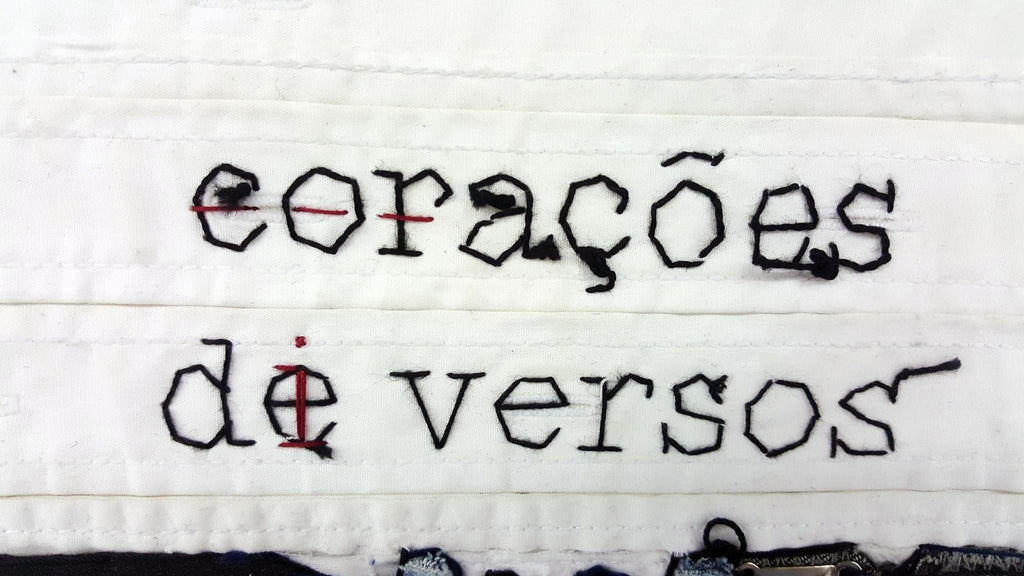 corações
de i versos